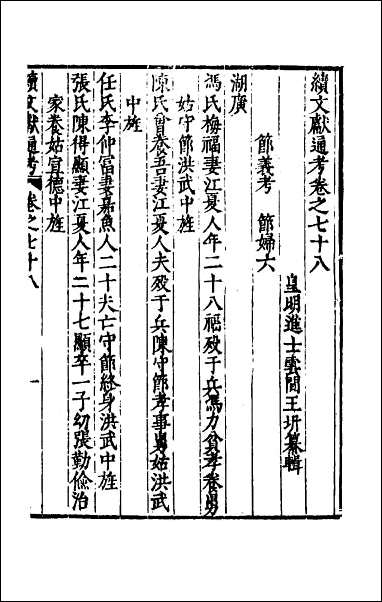 續文獻通考卷之七十八
皇明進士雲間王圻纂輯
節義考 節婦六
湖廣
馮氏梅福妻江夏人年二十八福殁于兵馮力貧孝養舅
姑守節洪武中旌
陳氏曾卷吾妻江夏人夫殁于兵陳守節孝事舅姑洪武
中旌
任氏李仲冨妻嘉魚人二十夫亡守節終身洪武中旌
張氏陳得顯妻江夏人年二十七顯卒一子幼張勤儉治
家養姑宣德中旌
續文獻通考 卷之七十八 一